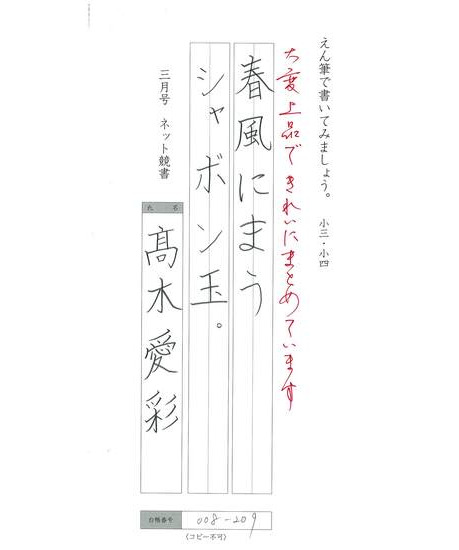 えん筆で書いてみましょう。 小三・小四
大変上品できれいにまとめています
春風にまう
シャボン玉。
三月号 ネット競書
氏名
髙木愛彩
台帳番号 008-209
(コピー不可)